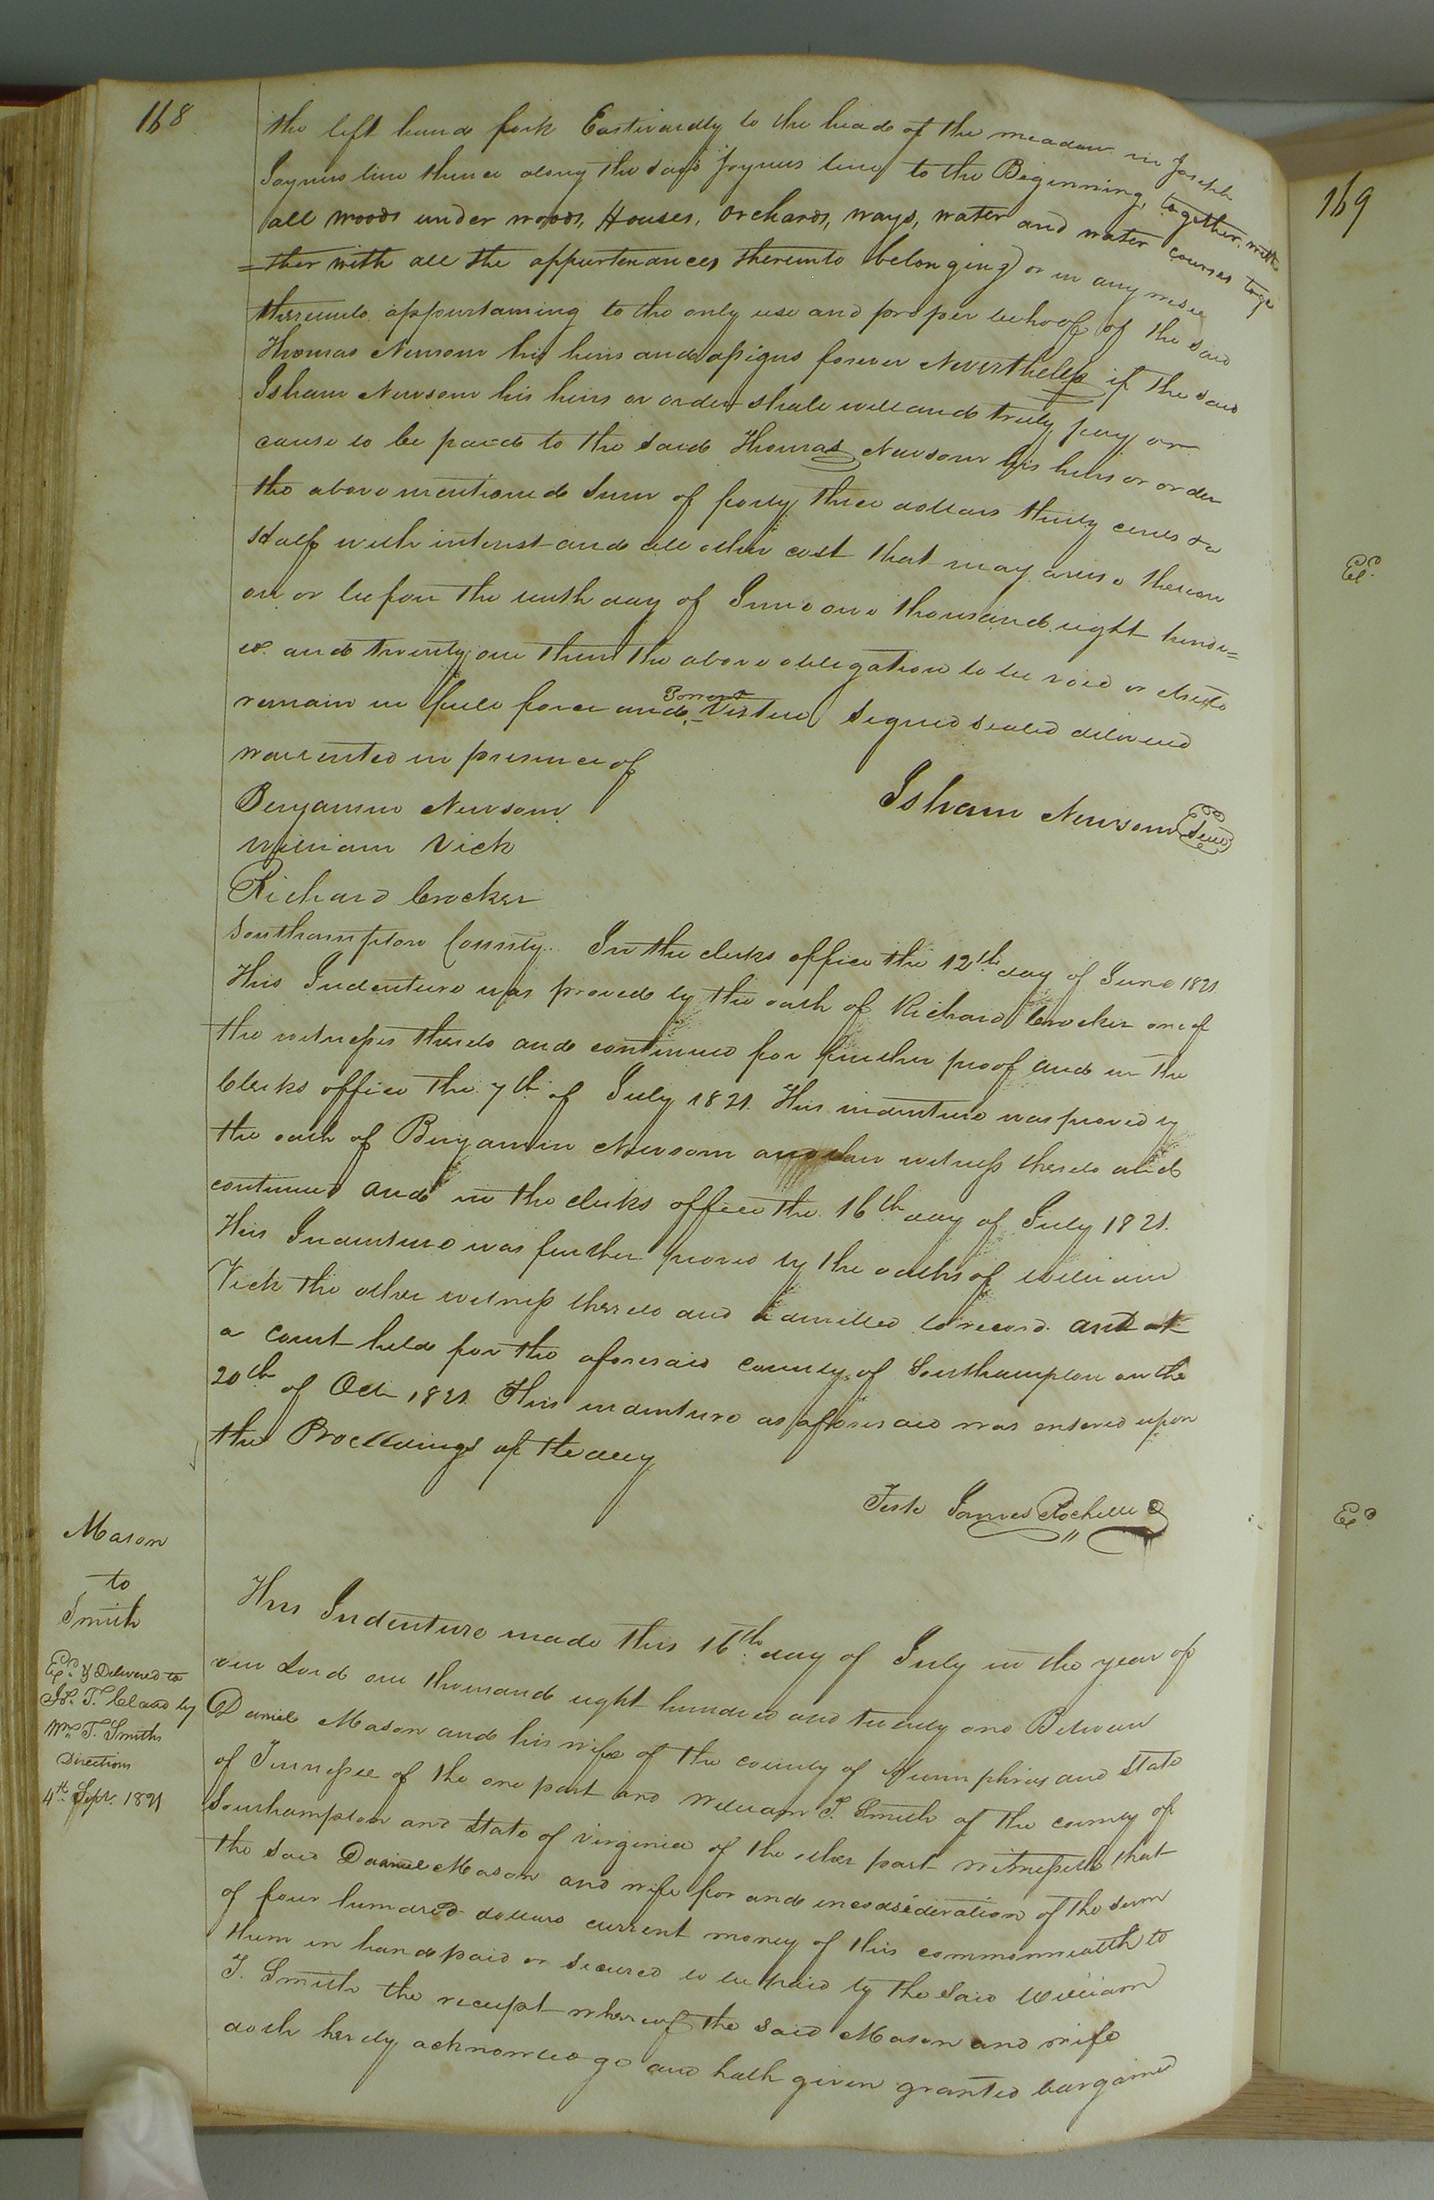 168
the left hand fork Eastwardly to the head of the meadow in Joseph
Joyners line thence along the said Joyners line to the Beginning, together with
all woods under woods, Houses, Orchards, ways, water and water courses toge
=ther with all the appurtenances thereunto belonging or in any wise
thereunto appurtaining to the only use and proper behoof of the said
Thomas Newsom his heirs and assigns forever Nevertheless if the said
Isham Newsom his heirs or order shall well and truly pay or
cause to be paid to the said Thomas Newsom his heirs or order
the above mentioned sum of forty three dollars thirty cents &a
half with interest and all other cost that may arise thereon
on or before the tenth day of June one thousand eight hundr=
ed and twenty one then the above obligation to be void or else to
remain in full force and Virtue Signed sealed delivered
warrented in presence of
Benjamin Newsom
William Vick
Richard Crocker
Isham Newsom Seal
Southampton County. In the clerks office the 12th day of June 1821
This Indenture was proved by the oath of Richard Crocker one of
the witnesses thereto and continued for further proof and in the
Clerks office the 7th of July 1821. This indenture was proved by
the oath of Benjamin Newsom another witness thereto and
continued and in the clerks office the 16th day of July 1821.
This Indenture was further proved by the oaths of William
Vick the other witness thereto and admitted to record. and at
a court held for the aforesaid county of Southampton on the
20th of Oct 1821 This indenture as aforesaid was entered upon
the Proceedings of the day
Teste James Rochelle
Mason
to
Smith
Ed. & Delivered to
Js. T. Claud by
Wm. T. Smiths
Directions
4th Sept. 1821
This Indenture made this 16th day of July in the year of
our Lord one thousand eight hundred and twenty one Between
Daniel Mason and his wife of the county of Humphries and State
of Tennessee of the one part and William T. Smith of the county of
Southampton and State of Virginia of the other part witnesseth that
the said Daniel Mason and wife for and in consideration of the sum
of four hundred dollars current money of this commonwealth to
them in hand paid or secured to be paid by the said William
T. Smith the receipt whereof the said Mason and wife
doth hereby acknowledge and hath given granted bargained
169
Ed.
Ed.